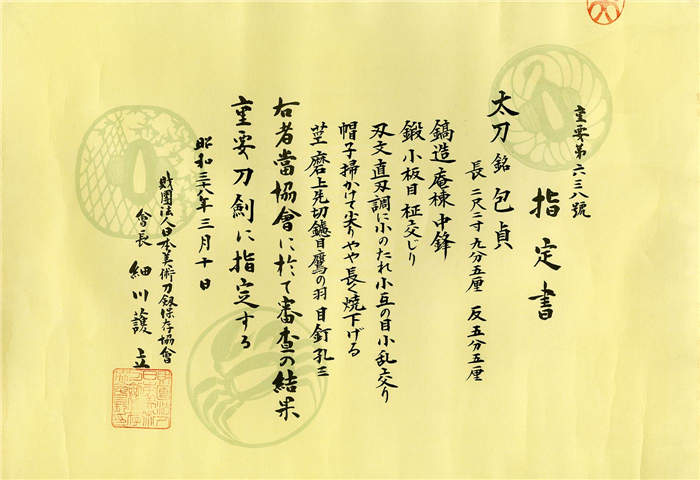 重要第六三八號
指定書
太刀 銘 包貞
長 二尺二寸九分五厘 反 五分五厘
鎬造庵棟中鋒
鍛 小板目 柾交じり
刃文直刃調に小のたれ小互の目小乱交り
帽子掃かけて尖りやや長く焼下げる
茎 磨上先切鑢目鷹の羽 目釘孔三
右者當協會に於て審査の結果
重要刀剣に指定する
昭和三十八年三月十日
財團法人日本美術刀剣保存協會
會長 細川護立